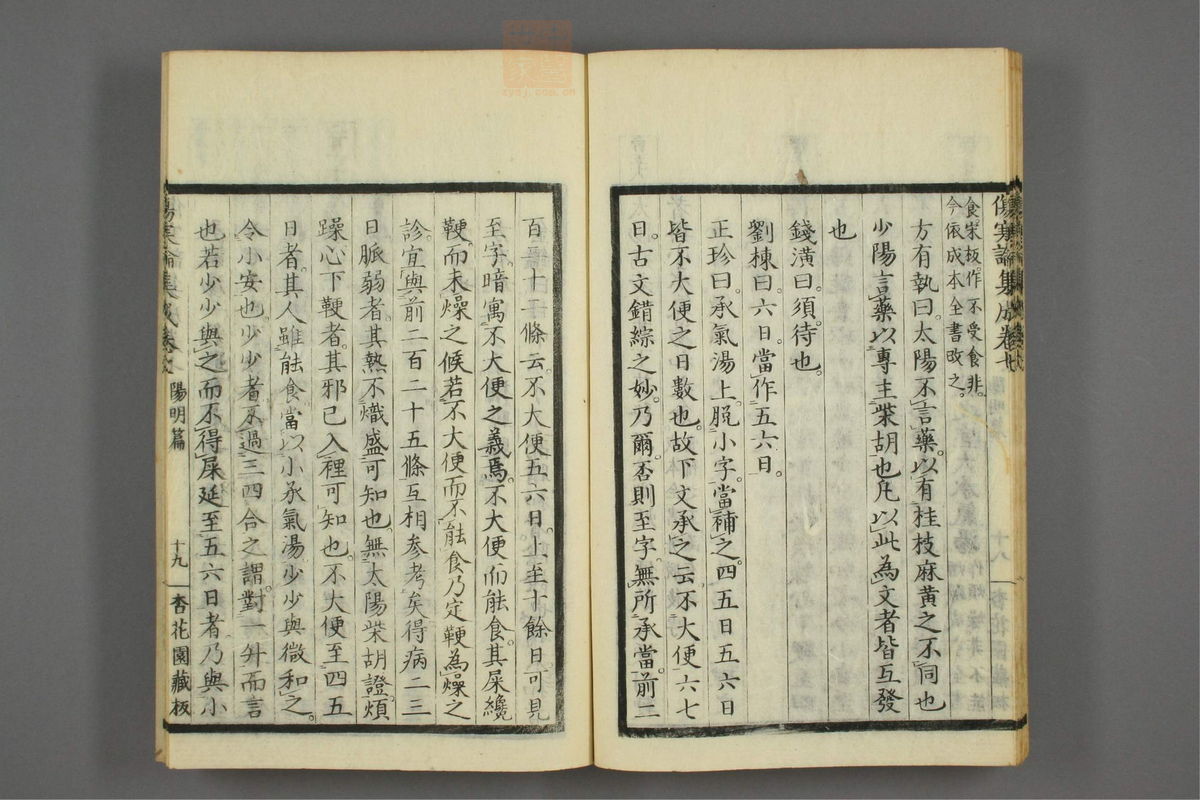 傷寒論集成卷七
食宋板作不受食非
今依成本全書改之
方有執曰太陽不言藥以有桂枝麻黃之不同也
少陽言藥以專主柴胡也凡以此為文者皆互發
也
錢潢曰須待也
劉棟曰六日當作五六日
正珍曰承氣湯上脫小字當補之四五日五六日
皆不大便之日數也故下文承之云不大便六七
日古文錯綜之妙乃爾否則至字無所承當前二
百 十 條云不大便五六日上至十餘日可見
至字暗寓不大便之義焉不大便而能食其屎纔
鞕而未燥之候若不大便而不能食乃定鞕為燥之
診宜與前二百二十五條互相參考矣得病二三
日脈弱者其熱不熾盛可知也無太陽柴胡證煩
躁心下鞕者其邪已入裡可知也不大便至四五
日者其人雖能食當以小承氣湯少少與微和之
令小安也少少者不過三四合之謂對一升而言
也若少少與之而不得屎延至五六日者乃與小
傷寒論集成卷 陽明篇 十九 杏花園藏板
zysj.com.cn